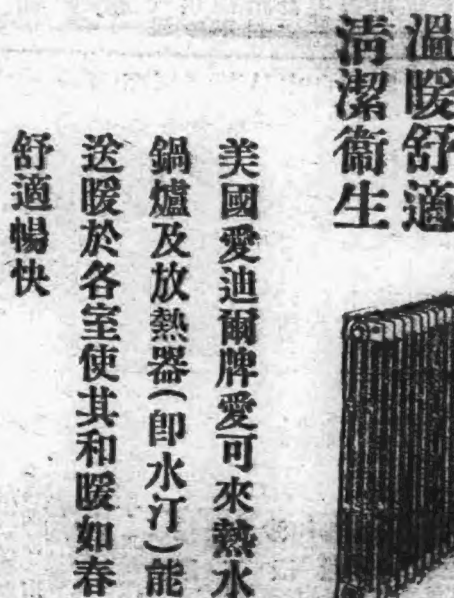 溫暖舒適
清潔衞生
美國愛迪爾牌愛可來熱水
鍋爐及放熱器(卽水汀)能
送暖於各室使其和暖如春
舒適暢快